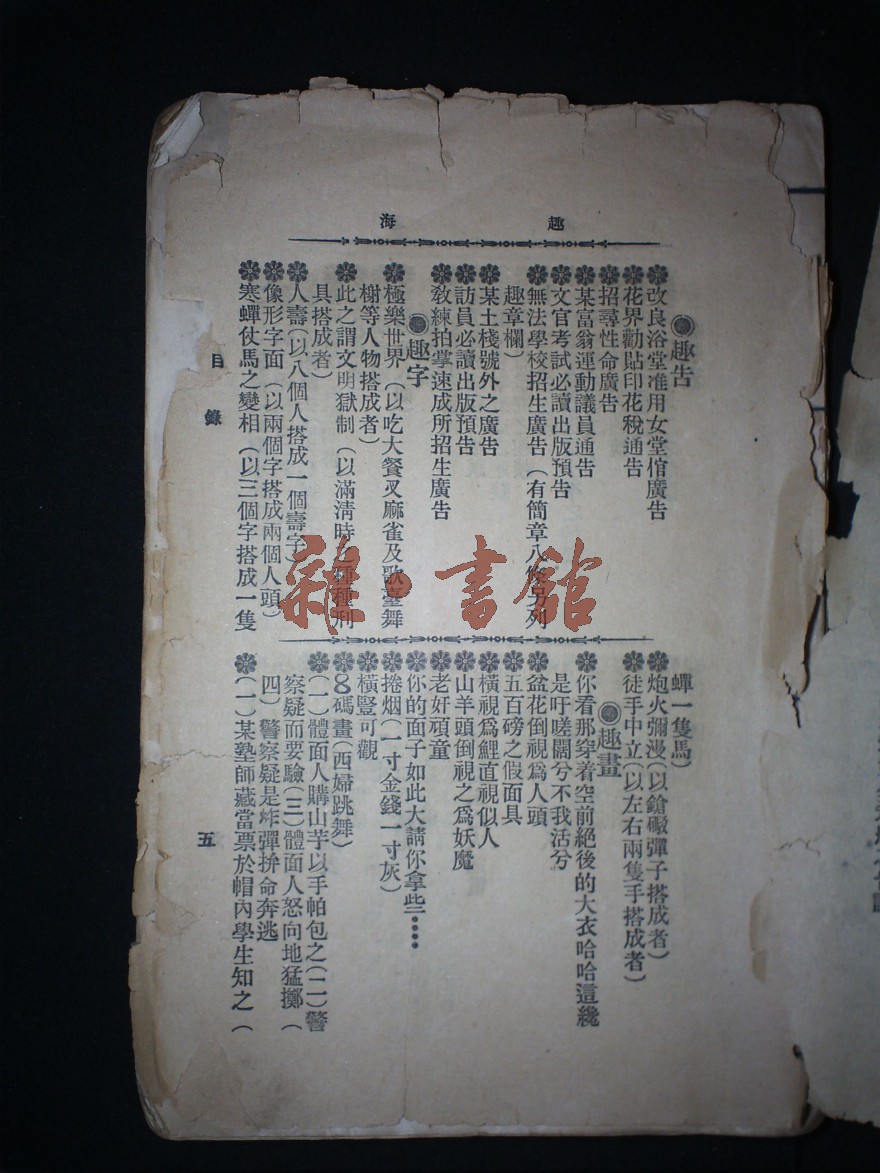 趣海
◉趣告
❁改良浴堂准用女堂倌廣告
❁花界勸貼印花稅通告
❁招尋性命廣告
❁某富翁運動議員通告
❁文官考試必讀出版預告
❁無法學校招生廣告(有簡章八 另列
趣章欄)
❁某土棧號外之廣告
❁訪員必讀出版預告
❁教練拍掌速成所招生廣告
◉趣字
❁極樂世界(以吃大餐叉麻雀及歌臺舞
榭等人物搭成者)
❁此之謂文明獄制(以滿淸時 種種刑
具搭成者)
❁人壽(以八個人搭成一個壽字)
❁像形字面(以兩個字搭成兩個人頭)
❁寒蟬仗馬之變相(以三個字搭成一隻
蟬一隻馬)
❁炮火彌漫(以鎗礮彈子搭成者)
❁徒手中立(以左右兩隻手搭成者)
◉趣畫
❁你看那穿着空前絕後的大衣哈哈這纔
是吁嗟闊兮不我活兮
❁盆花倒視爲人頭
❁五百磅之假面具
❁橫視爲鯉直視似人
❁山羊頭倒視之爲妖魔
❁老奸頑童
❁你的面子如此大請你拿些····
❁捲烟(一寸金錢一寸灰)
❁橫豎可觀
❁8碼畫(西婦跳舞)
❁(一)體面人購山芋以手帕包之(二)警
察疑而要驗(三)體面人怒向地猛擲(
四)警察疑是炸彈拚命奔逃
❁(一)某塾師藏當票於帽內學生知之(
目錄
五
雜·書館